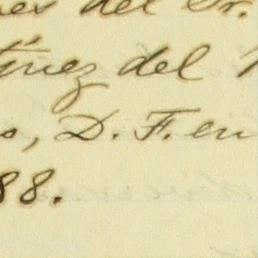 es del Sr.
tínez del
s, D. F. en
88.